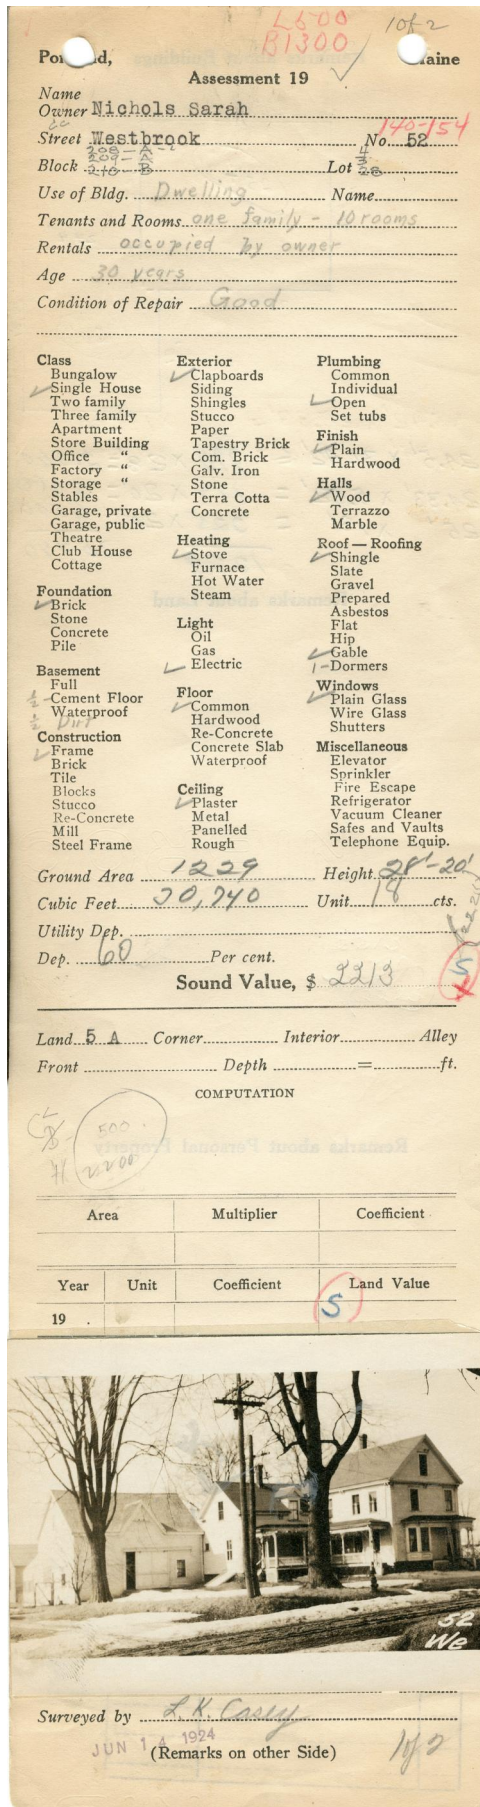 L500
B1300
1 of 2
Portland, Maine
Assessment 19
Name
Owner Nichols Sarah
140-154
Street Westbrook No. 52
208-A-
209-A
Block 210 B Lot 28
Use of Bldg. Dwelling Name
Tenants and Rooms one family - 10 rooms
Rentals occupied by owner
Age 30 years
Condition of Repair Good
Class
Bungalow
Single House
Two family
Three family
Apartment
Store Building
Office "
Factory "
Storage "
Stables
Garage, private
Garage, public
Theatre
Club House
Cottage
Foundation
Brick
Stone
Concrete
Pile
Basement
Full
½ - Cement Floor
Waterproof
½ Dirt
Construction
Frame
Brick
Tile
Blocks
Stucco
Re-Concrete
Mill
Steel Frame
Exterior
Clapboards
Siding
Shingles
Stucco
Paper
Tapestry Brick
Com. Brick
Galv. Iron
Stone
Terra Cotta
Concrete
Heating
Stove
Furnace
Hot Water
Steam
Light
Oil
Gas
Electric
Floor
Common
Hardwood
Re-Concrete
Concrete Slab
Waterproof
Ceiling
Plaster
Metal
Panelled
Rough
Plumbing
Common
Individual
Open
Set tubs
Finish
Plain
Hardwood
Halls
Wood
Terrazzo
Marble
Roof — Roofing
Shingle
Slate
Gravel
Prepared
Asbestos
Flat
Hip
Gable
1 - Dormers
Windows
Plain Glass
Wire Glass
Shutters
Miscellaneous
Elevator
Sprinkler
Fire Escape
Refrigerator
Vacuum Cleaner
Safes and Vaults
Telephone Equip.
Ground Area 1229 Height 28'-20'
Cubic Feet 30,740 Unit 18 cts.
Utility Dep.
Dep. 60 Per cent.
S
Sound Value, $ 2213
Land 5 A Corner Interior Alley
Front Depth = ft.
COMPUTATION
500.
2200
Area Multiplier Coefficient
Year Unit Coefficient Land Value
19 . S
52
We
Surveyed by L. K. Casey
JUN 14 1924
(Remarks on other Side)
1 of 2